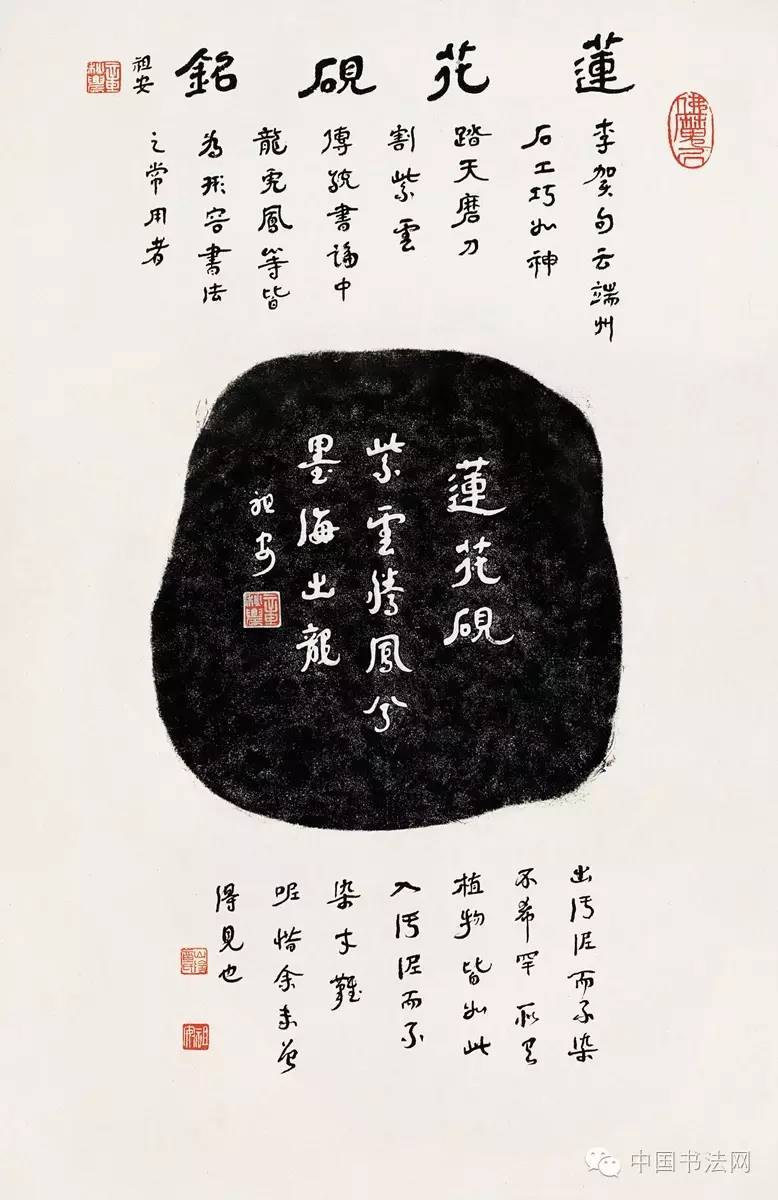 蓮花硯銘
祖安
李賀句云端州
石工巧如神
踏天磨刀
割紫雲
傳統書論中
龍虎鳳等皆
為形容書法
之常用者
蓮花硯
紫雲騰鳳兮
墨海出龍
祖安
出污泥而不染
不希罕所有
植物皆如此
入污泥而不
染才難
呢惜余未曾
得見也
祖安
中国书法网